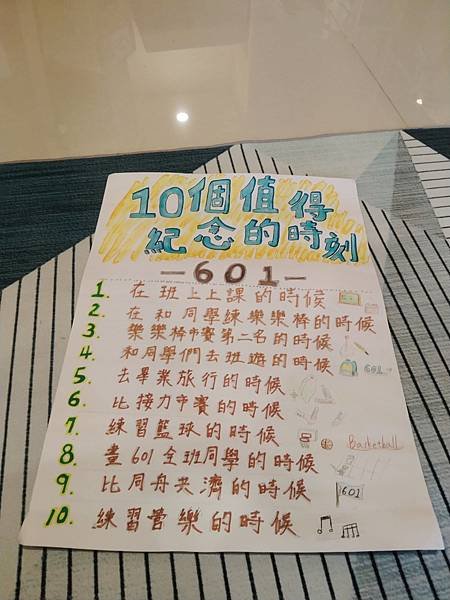 10個值得
紀念的時刻
—601—
1. 在班上上課的時候
2. 在和同學練樂樂棒的時候
3. 樂樂棒市賽第二名的時候
4. 和同學們去班遊的時候
601
5. 去畢業旅行的時候
6. 比接力市賽的時候
7. 練習籃球的時候 Basketball
8. 畫601全班同學的時候
9. 比同舟共濟的時候 601
10. 練習管樂的時候